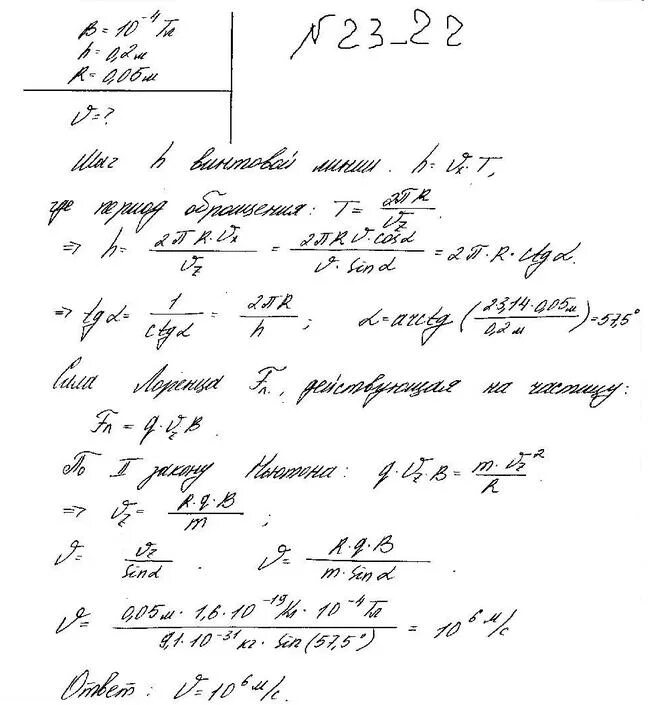 B = 10⁻⁴ Тл
h = 0,2 м
R = 0,05 м
N 23_22
V = ?
Шаг h винтовой линии. h = Vₓ·T,
где период обращения: T = 2πR / V_z
=> h = 2πR·Vₓ / V_z = 2πRV·cosα / V·sinα = 2π·R·ctgα.
=> tgα = 1 / ctgα = 2πR / h ; α = arctg (23,14·0,05м / 0,2м) = 57,5°
Сила Лоренца Fл., действующая на частицу:
Fл = q·V_z B.
По II закону Ньютона: q·V_z·B = m·V_z² / R.
=> V_z = R·q·B / m ;
V = V_z / sinα . V = R·q·B / m·sinα .
V = 0,05м·1,6·10⁻¹⁹Кл·10⁻⁴Тл / 9,1·10⁻³¹кг·sin(57,5°) = 10⁶ м/с
Ответ: V = 10⁶ м/с.